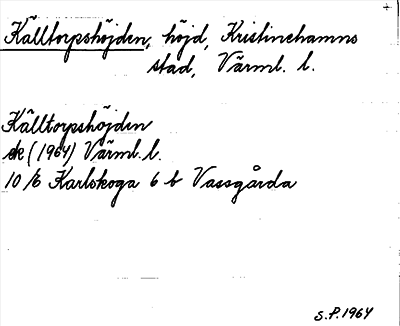 Källtorpshöjden, höjd, Kristinehamns
stad, Värml. l.
Källtorpshöjden
ek (1964) Värml. l.
10 /6 Karlskoga 6 b Vassgårda
S.P. 1964